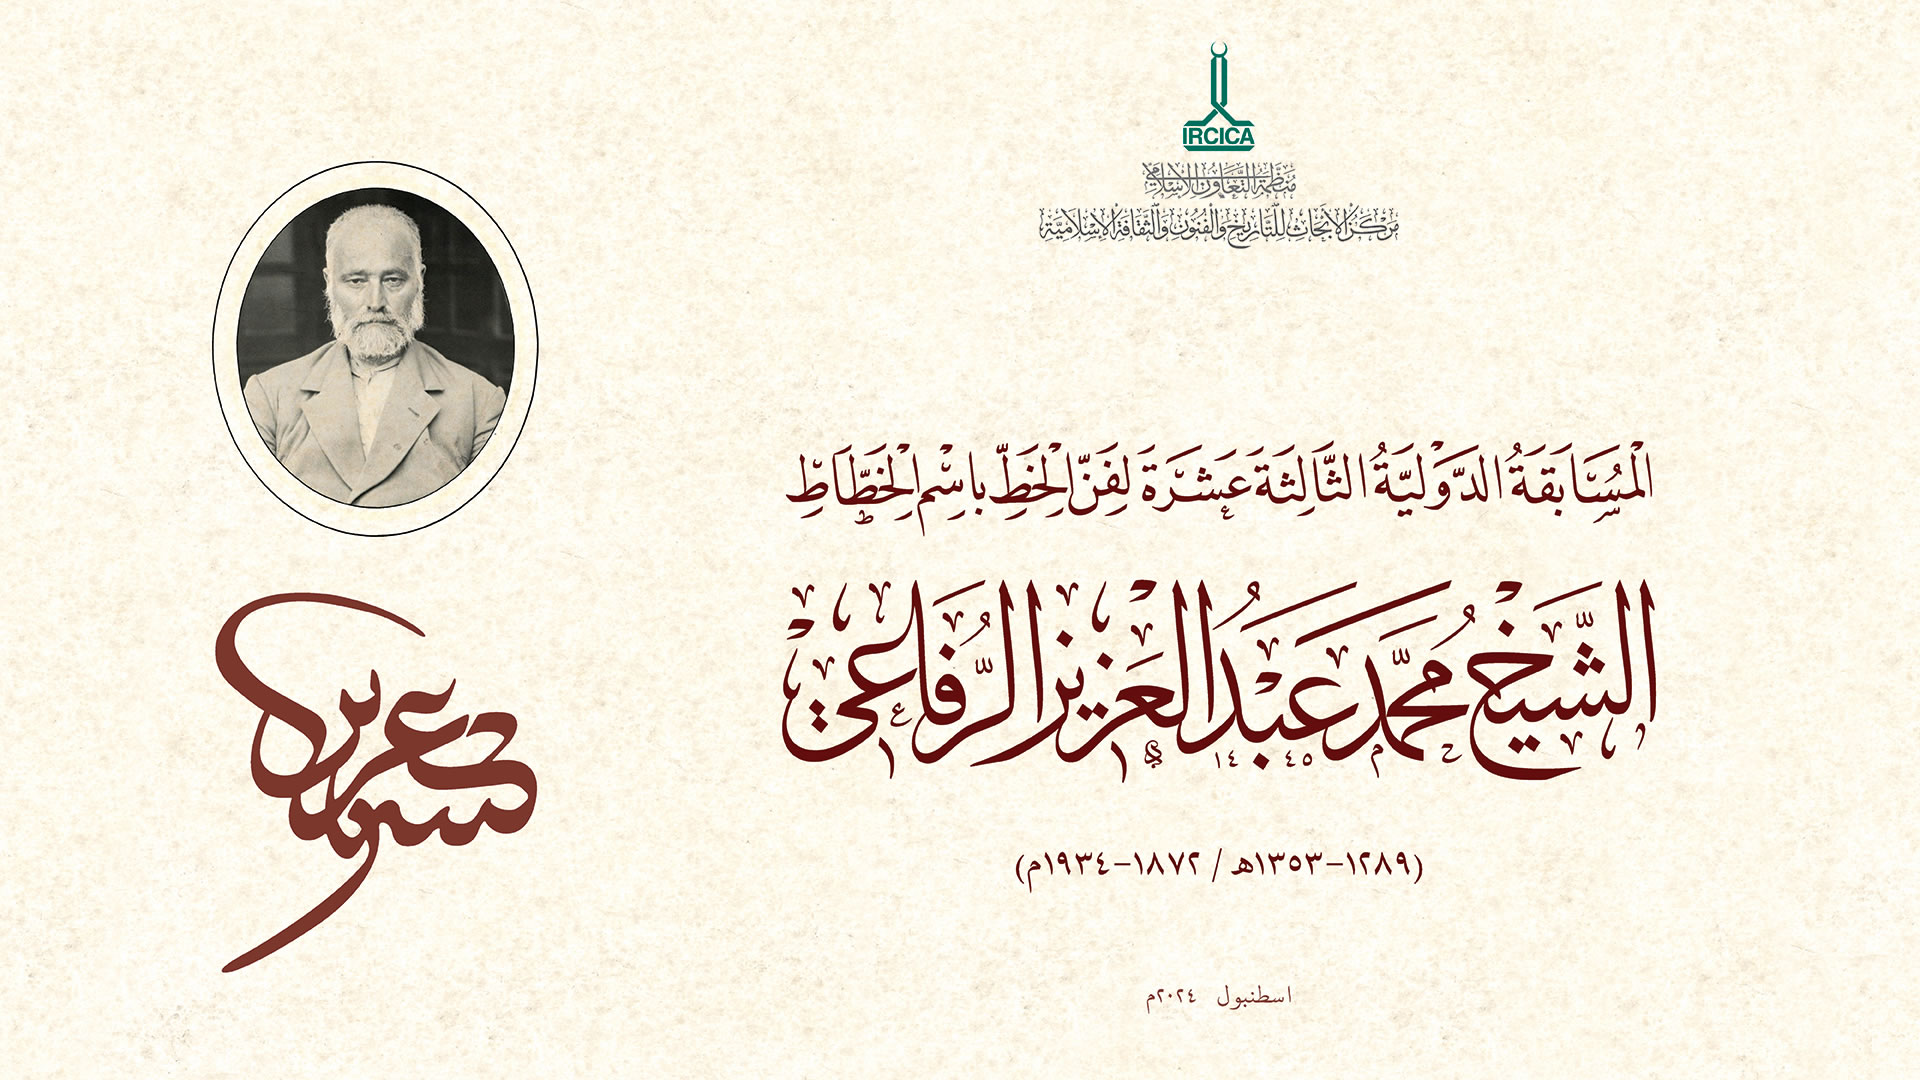 IRCICA
منظمة التعاون الإسلامي
مركز الأبحاث للتاريخ والفنون والثقافة الإسلامية
الْمُسَابَقَةُ الدَّوْلِيَّةُ الثَّالِثَةَ عَشَرَةَ لِفَنِّ الْخَطِّ بِاسْمِ الْخَطَّاطِ
الشَّيْخ مُحَمَّد عَبْدُ الْعَزِيز الرُّفَاعِي
١٤٤٥
(١٢٨٩–١٣٥٣هـ / ١٨٧٢–١٩٣٤م)
اسطنبول ٢٠٢٤م